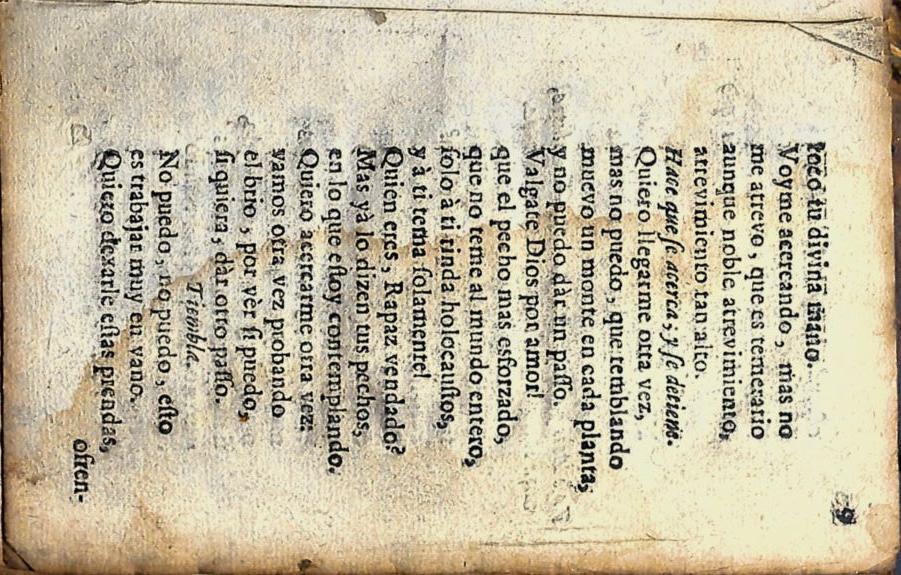 9
toco tu divina mano.
Voyme acercando, mas no
me atrevo, que es temerario
aunque noble atrevimiento,
atrevimiento tan alto.
Hace que ſe acerca, y ſe detiene.
Quiero llegarme otra vez,
mas no puedo, que temblando
muevo un monte en cada planta,
y no puedo dàr un paſſo.
Valgate Dios por amor!
que el pecho mas esforzado,
que no teme al mundo entero,
ſolo à ti rinda holocauſtos,
y à ti tema ſolamente!
Quien eres, Rapaz vendado?
Mas yà lo dizen tus pechos,
en lo que eſtoy contemplando.
Quiero acercarme otra vez:
vamos otra vez probando
el brio, por vèr ſi puedo,
ſi quiera, dàr otro paſſo.
Tiembla.
No puedo, no puedo, eſto
es trabajar muy en vano.
Quiero dexarle eſtas prendas,
ofren-